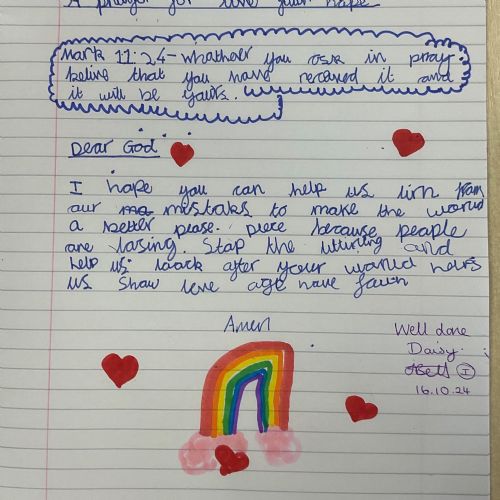 A prayer for love your hope
Mark 11:24 - whather you ask in pray
belive that you have recaved it and
it will be yours.
Dear God
I hope you can help us lirn from
our mistaks to make the world
a better please. piece because people
are losing. Stop the and
help us look after your world help
us show love have faith
Amen
Well done
Daisy.
16.10.24